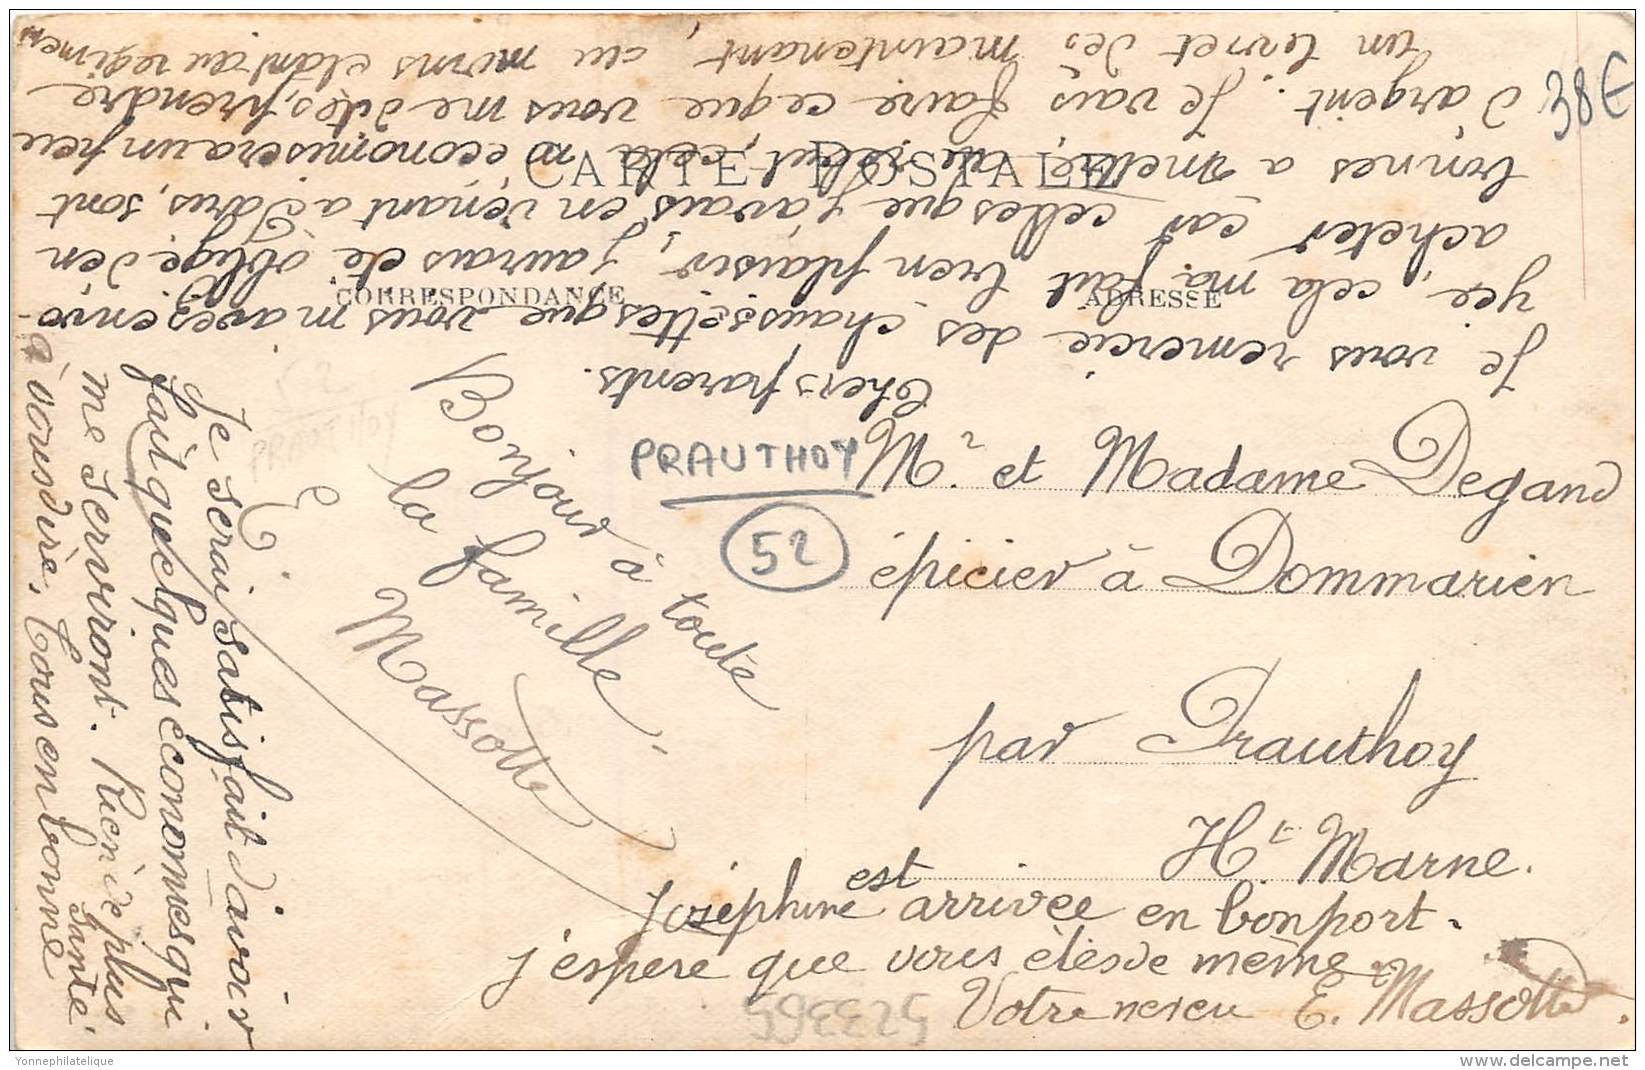 Chers parents.
Je vous remercie des chaussettes que vous m'avez envo
yée, cela m'a fait bien plaisir, j'aurais été obligé d'en
acheter car celles que j'avais en venant a Paris, sont
bonnes a mettre au rebut, cela m'économisera un peu
d'argent. Je vais faire ce que vous me dites, prendre
un livret dès maintenant, au moins étant au régimen
Je serai satisfait d'avoir
fait quelques économies qui
me serviront. Rien de plus
à vous dire. Tous en bonne
santé
E.
Bonjour à toute
la famille.
Massotte
CARTE POSTALE
CORRESPONDANCE
ADRESSE
38€
PRAUTHOY
52
52
PRAUTHOY
Mr. et Madame Degand
épicier à Dommarien
par Prauthoy
Ht. Marne.
Joséphine est arrivée en bon port.
j'espère que vous êtes de même
Votre neveu E. Massotte.
523365
Yonnephilatelique
delcampe.net